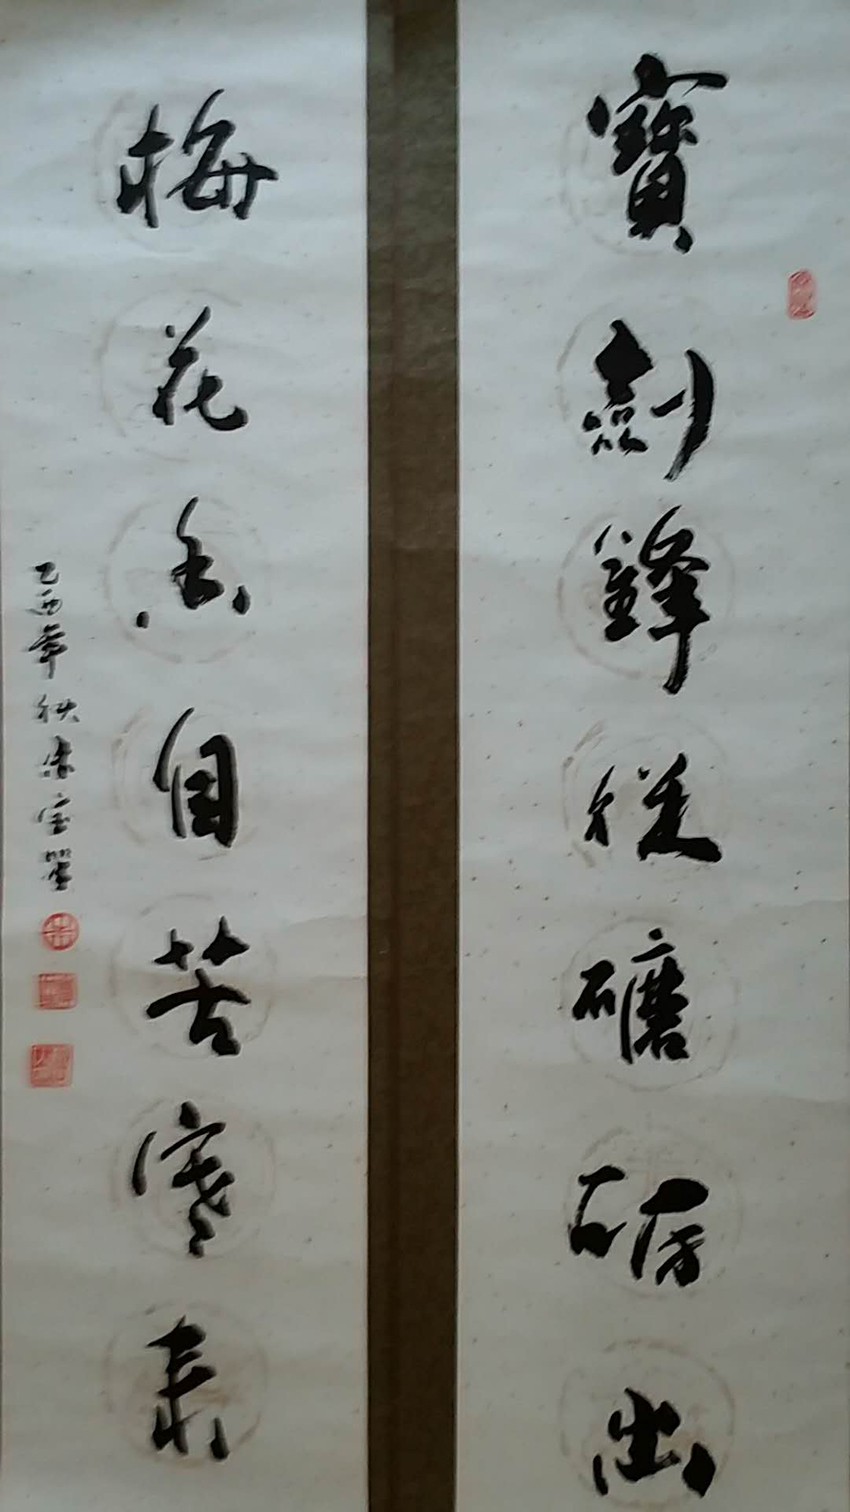 寶劍鋒從磨礪出
梅花香自苦寒來
乙酉年秋朱宝